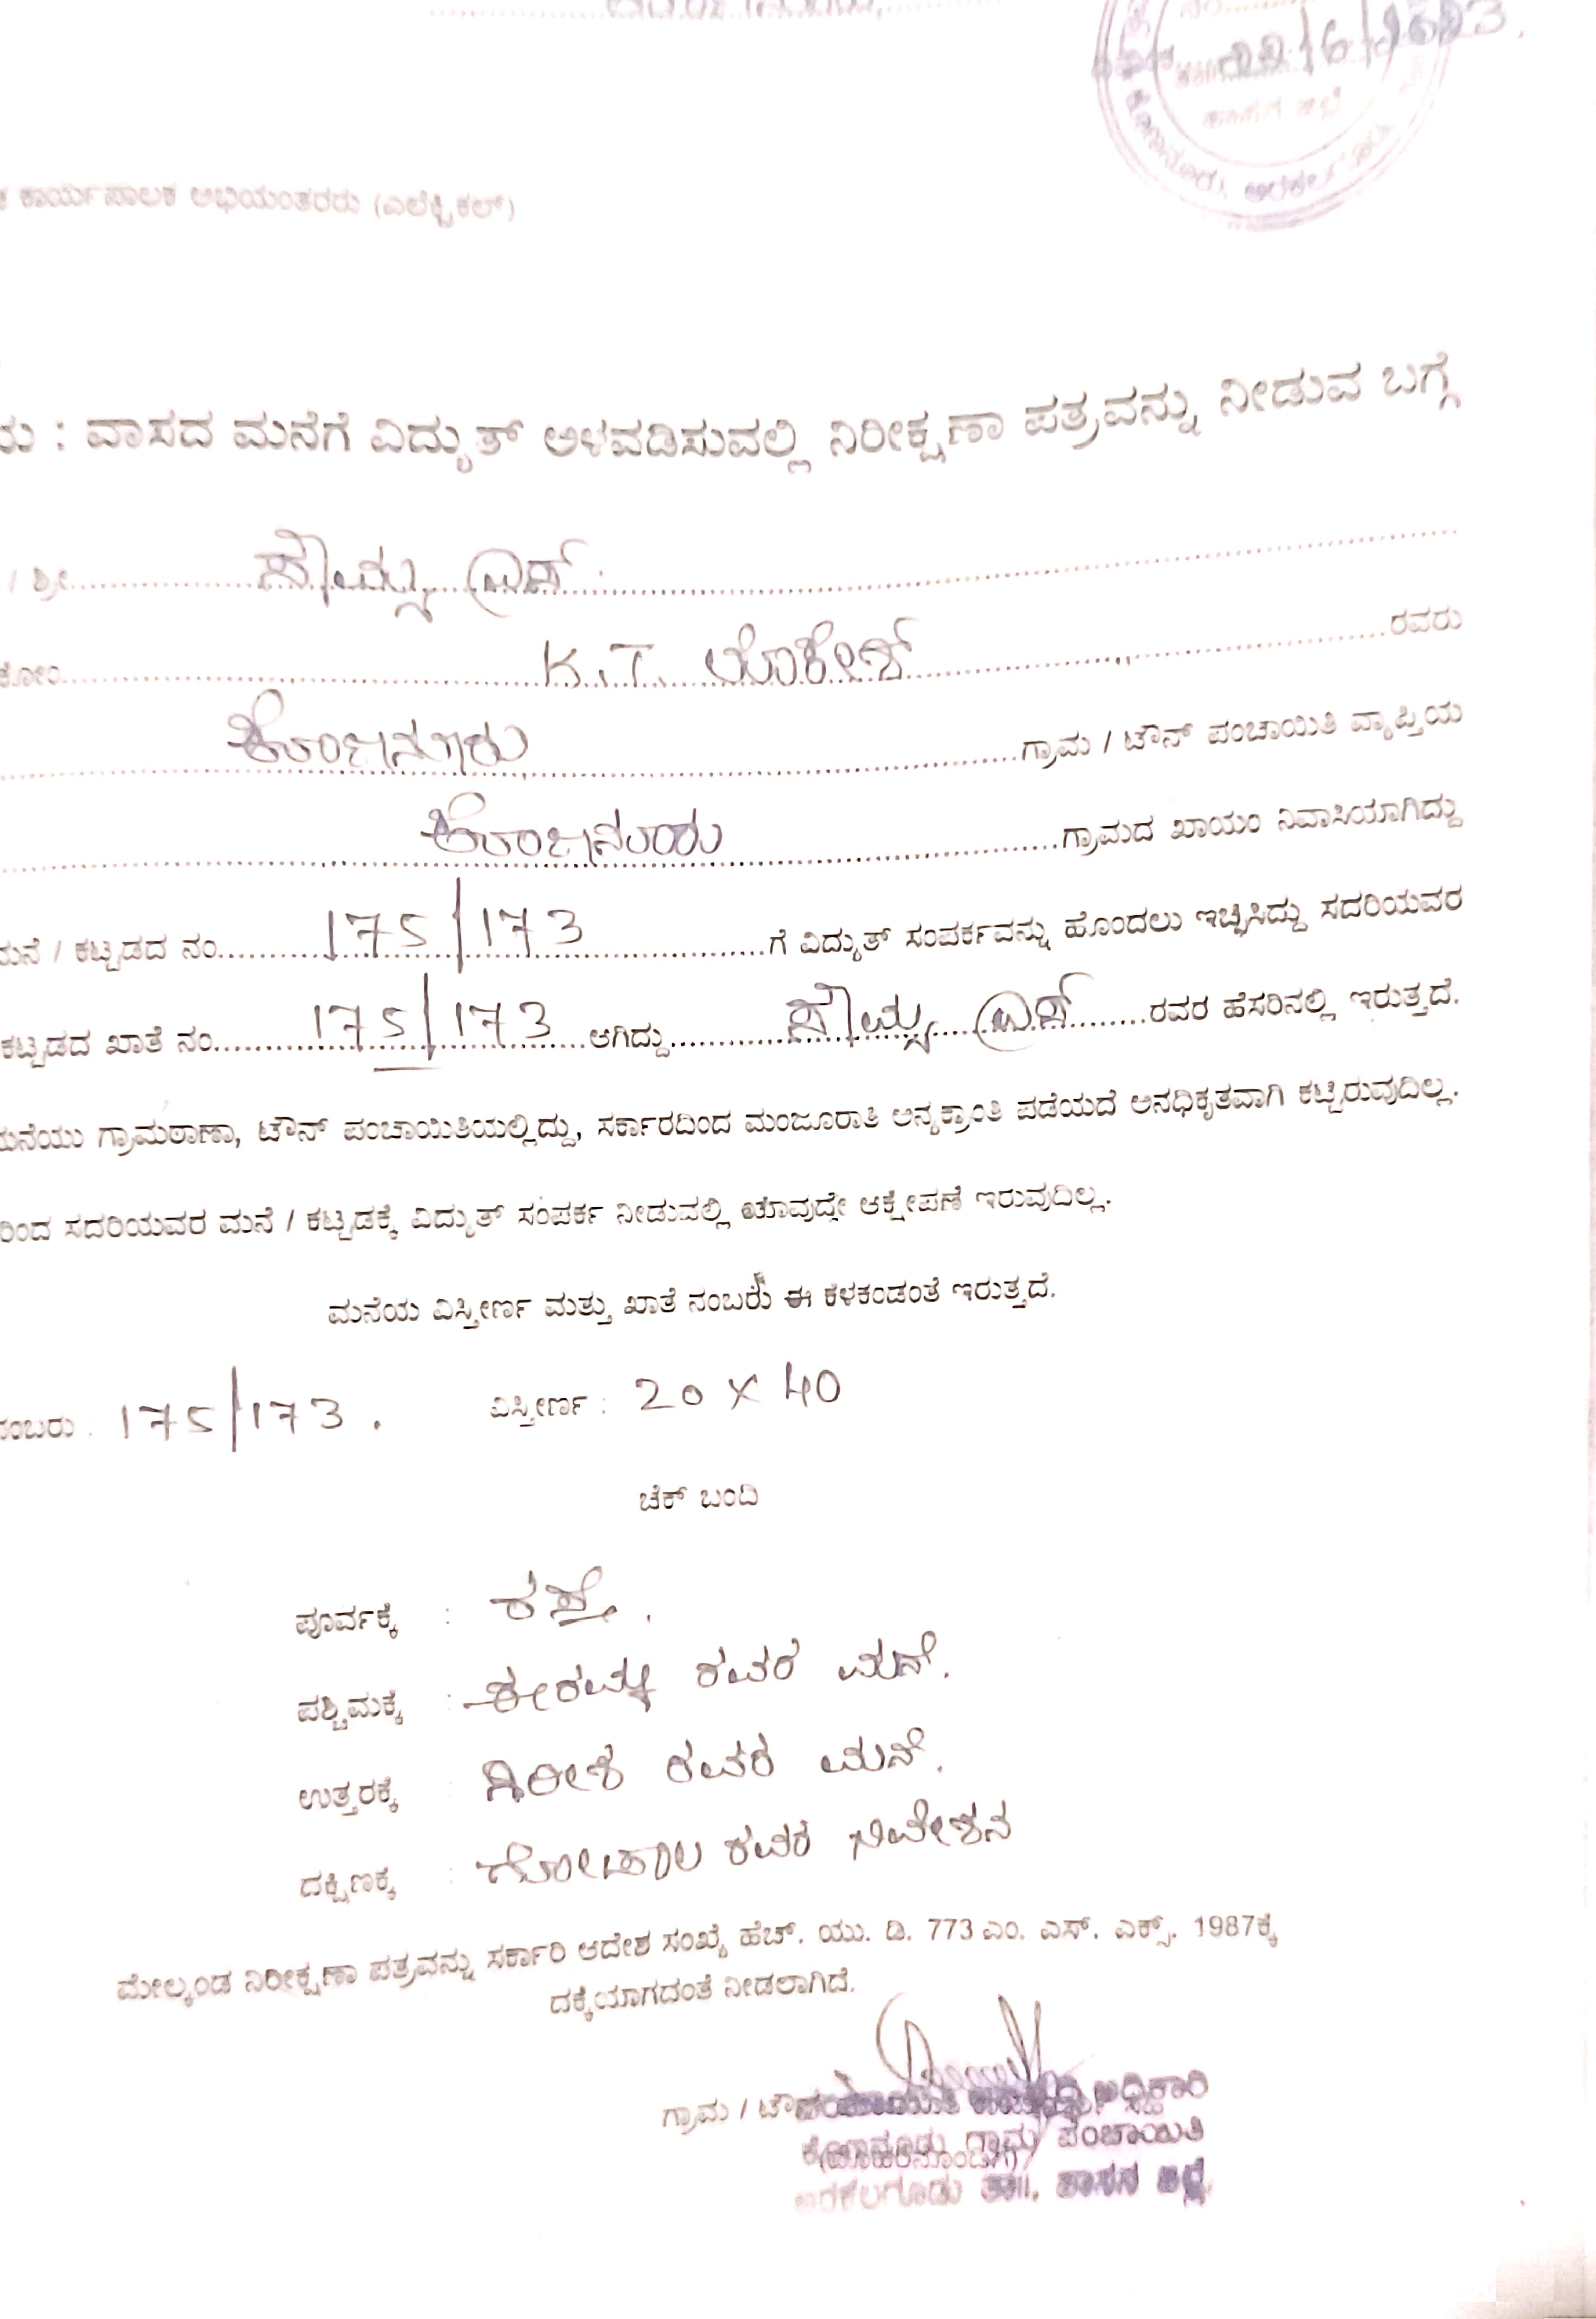 22/6/2023.
ಕಾರ್ಯಪಾಲಕ ಅಭಿಯಂತರರು (ಎಲೆಕ್ಟ್ರಿಕಲ್)
: ವಾಸದ ಮನೆಗೆ ವಿದ್ಯುತ್ ಅಳವಡಿಸುವಲ್ಲಿ ನಿರೀಕ್ಷಣಾ ಪತ್ರವನ್ನು ನೀಡುವ ಬಗ್ಗೆ
/ ಶ್ರೀ ಸೌಮ್ಯ ಎಸ್
ಕೋಂ K.T. ಲೋಕೇಶ್ ರವರು
ಕೊಣನೂರು ಗ್ರಾಮ / ಟೌನ್ ಪಂಚಾಯಿತಿ ವ್ಯಾಪ್ತಿಯ
ಕೊಣನೂರು ಗ್ರಾಮದ ಖಾಯಂ ನಿವಾಸಿಯಾಗಿದ್ದು
ಮನೆ / ಕಟ್ಟಡದ ನಂ. 175/173 ಗೆ ವಿದ್ಯುತ್ ಸಂಪರ್ಕವನ್ನು ಹೊಂದಲು ಇಚ್ಛಿಸಿದ್ದು ಸದರಿಯವರ
ಕಟ್ಟಡದ ಖಾತೆ ನಂ. 175/173 ಆಗಿದ್ದು ಸೌಮ್ಯ ಎಸ್ ರವರ ಹೆಸರಿನಲ್ಲಿ ಇರುತ್ತದೆ.
ಮನೆಯು ಗ್ರಾಮಠಾಣಾ, ಟೌನ್ ಪಂಚಾಯಿತಿಯಲ್ಲಿದ್ದು, ಸರ್ಕಾರದಿಂದ ಮಂಜೂರಾತಿ ಅನ್ಯಕ್ರಾಂತಿ ಪಡೆಯದೆ ಅನಧಿಕೃತವಾಗಿ ಕಟ್ಟಿರುವುದಿಲ್ಲ.
ರಿಂದ ಸದರಿಯವರ ಮನೆ / ಕಟ್ಟಡಕ್ಕೆ ವಿದ್ಯುತ್ ಸಂಪರ್ಕ ನೀಡುವಲ್ಲಿ ಯಾವುದೇ ಆಕ್ಷೇಪಣೆ ಇರುವುದಿಲ್ಲ.
ಮನೆಯ ವಿಸ್ತೀರ್ಣ ಮತ್ತು ಖಾತೆ ನಂಬರು ಈ ಕೆಳಕಂಡಂತೆ ಇರುತ್ತದೆ.
ನಂಬರು : 175/173. ವಿಸ್ತೀರ್ಣ : 20 x 40
ಚೆಕ್ ಬಂದಿ
ಪೂರ್ವಕ್ಕೆ : ರಸ್ತೆ.
ಪಶ್ಚಿಮಕ್ಕೆ : ರವರ ಮನೆ.
ಉತ್ತರಕ್ಕೆ : ಗಿರೀಶ ರವರ ಮನೆ.
ದಕ್ಷಿಣಕ್ಕೆ : ಗೋಪಾಲ ರವರ ನಿವೇಶನ
ಮೇಲ್ಕಂಡ ನಿರೀಕ್ಷಣಾ ಪತ್ರವನ್ನು ಸರ್ಕಾರಿ ಆದೇಶ ಸಂಖ್ಯೆ ಹೆಚ್. ಯು. ಡಿ. 773 ಎಂ. ಎಸ್. ಎಕ್ಸ್. 1987ಕ್ಕೆ
ದಕ್ಕೆಯಾಗದಂತೆ ನೀಡಲಾಗಿದೆ.
ಗ್ರಾಮ / ಟೌನ್
ಕೊಣನೂರು ಗ್ರಾಮ ಪಂಚಾಯಿತಿ
ಅರಕಲಗೂಡು ತಾ॥, ಹಾಸನ ಜಿಲ್ಲೆ.